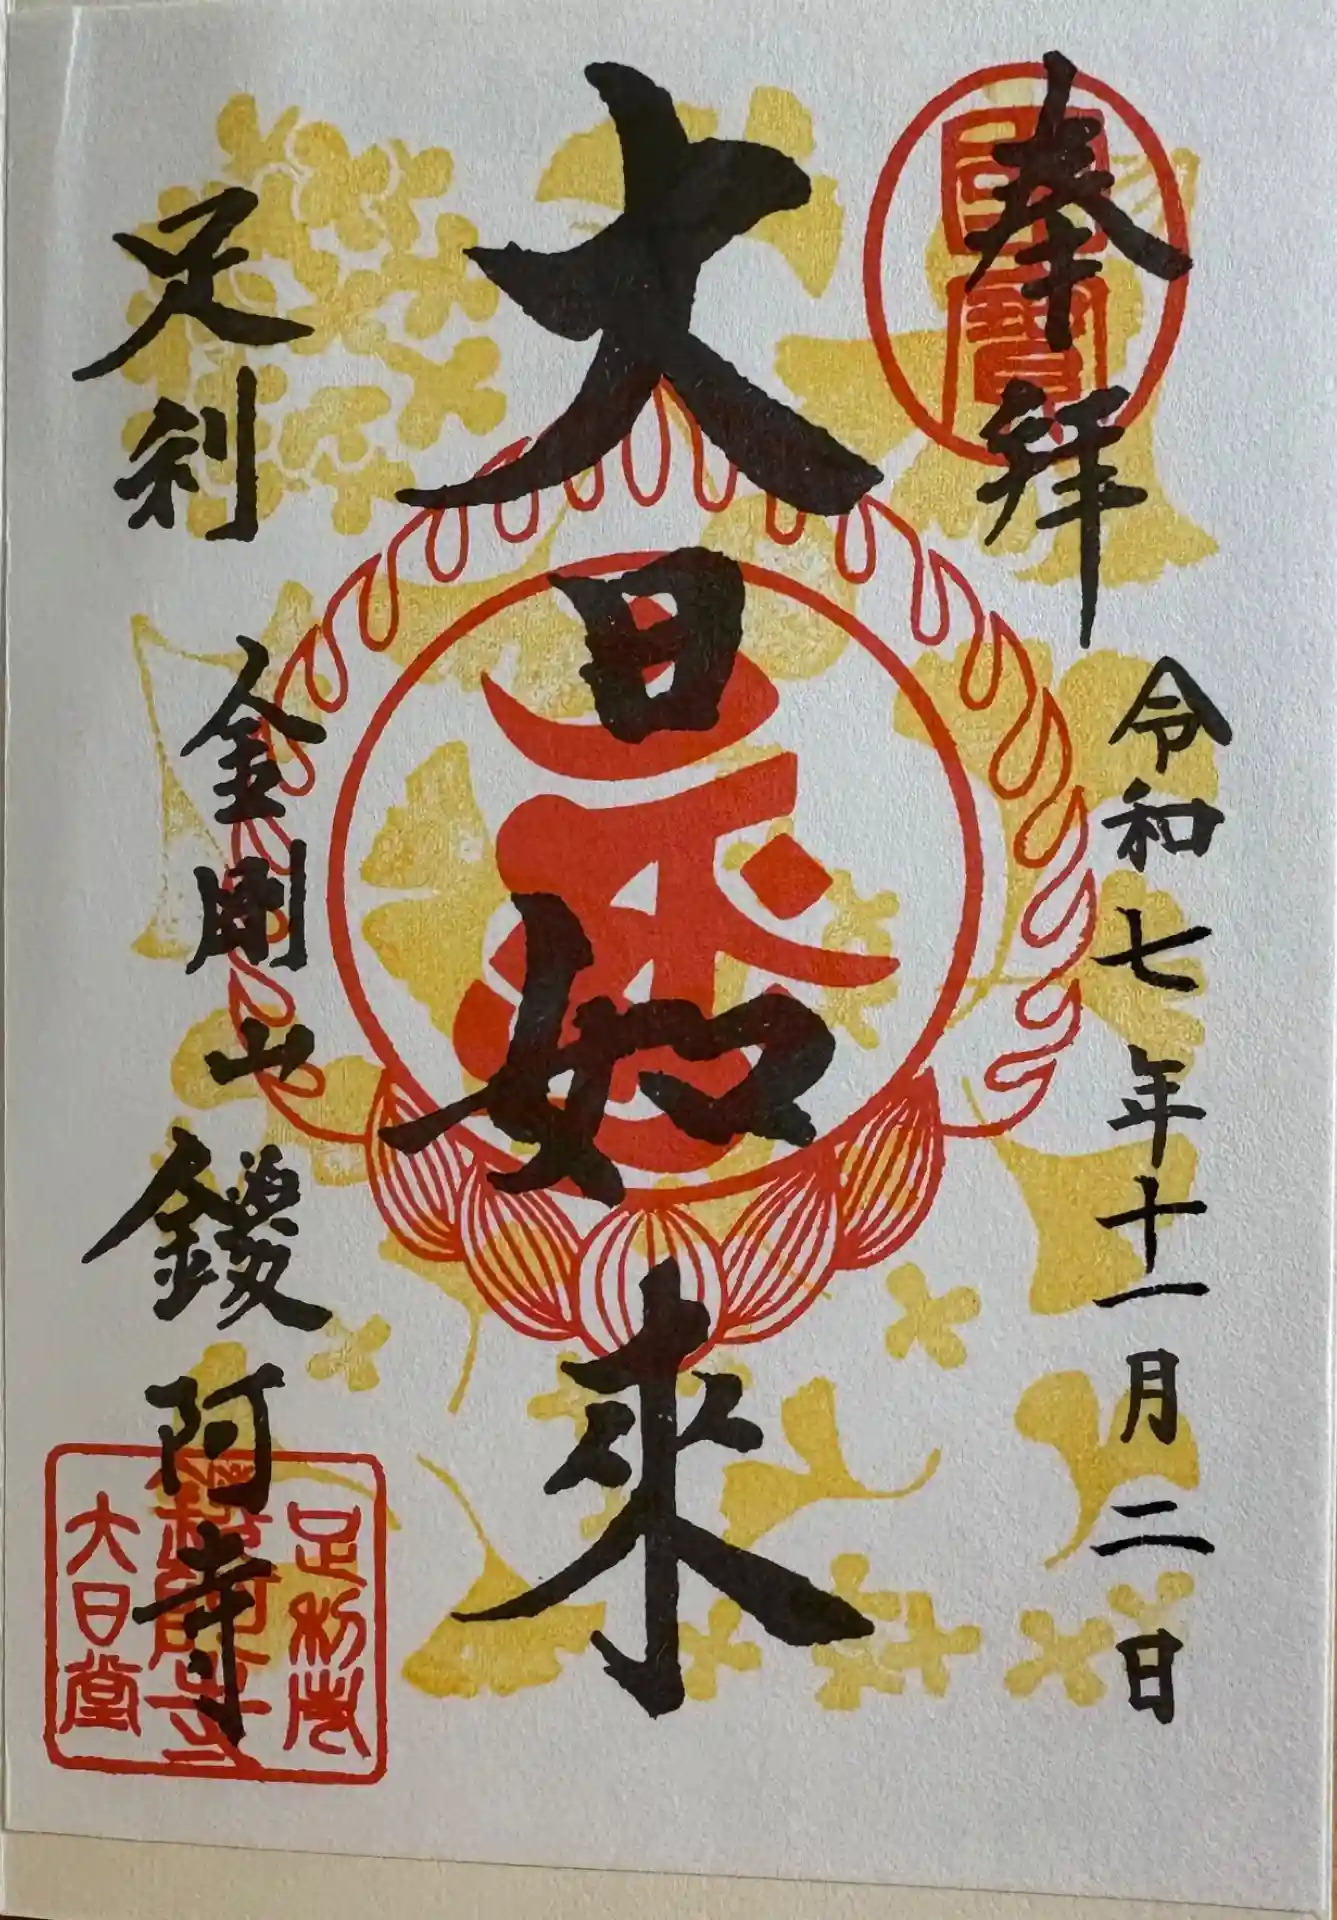 奉拜
令和七年十一月二日
大日如來
足利
金剛山
鑁阿寺
國寶
足利市
鑁阿寺
大日堂